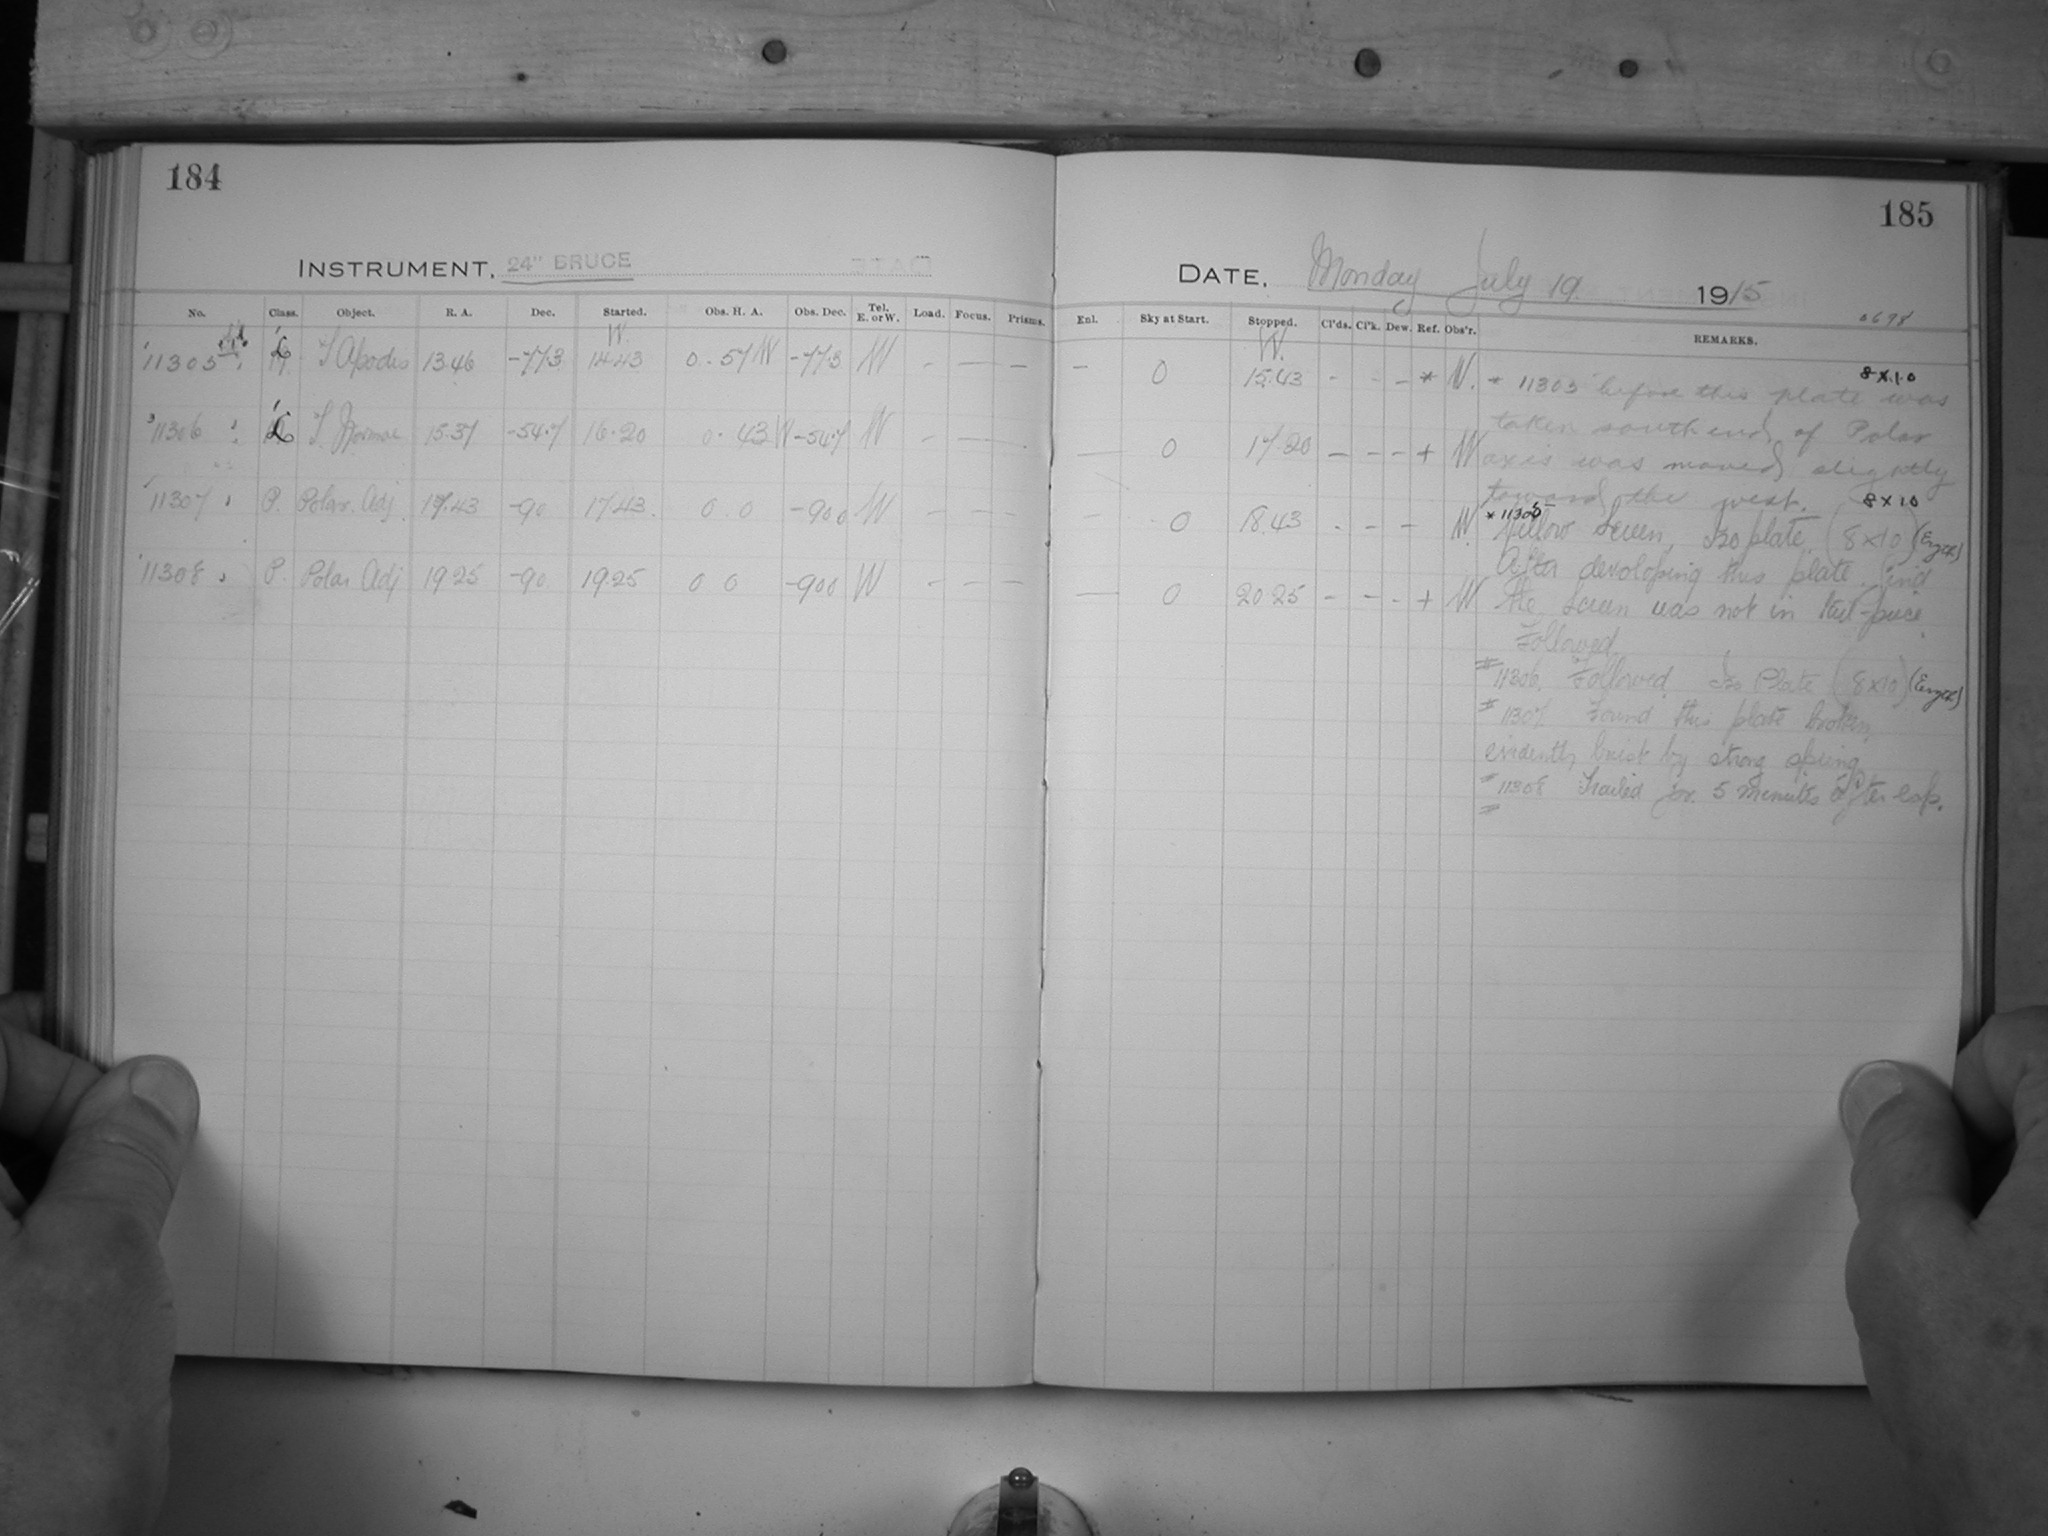 184
INSTRUMENT, 24" BRUCE
No. Class. Object. R. A. Dec. Started. Obs. H. A. Obs. Dec. Tel. E. or W. Load. Focus. Prisms.
W.
11305 L T Apodis 13.46 -77.3 14.43 0.57 W -77.3 W - - - -
11306 L T Normae 15.37 -54.7 16.20 0.43 W -54.7 W - - -
11307 P. Polar. Adj. 17.43 -90 17.43. 0.0 -90 0 W - - - -
11308 P. Polar Adj 19.25 -90 19.25 0 0 -90 0 W - - - -
185
DATE, Monday July 19 1915
0698
Enl. Sky at Start. Stopped. Cl'ds. Cl'k. Dew. Ref. Obs'r. REMARKS.
W.
- 0 15.43 - - - * W.
- 0 17.20 - - - + W
- 0 18.43 - - - W.
- 0 20.25 - - - + W
8 x 10
* 11305 before this plate was
taken south end of Polar
axis was moved slightly
toward the west.
8 x 10
* 11305
Yellow Screen, Iso plate. (8x10)
After developing this plate find
the screen was not in tail-piece.
Followed.
# 11306. Followed. Iso Plate (8x10)
# 11307. Found this plate broken,
evidently burst by strong spring
# 11308 Trailed for 5 minutes after exp.